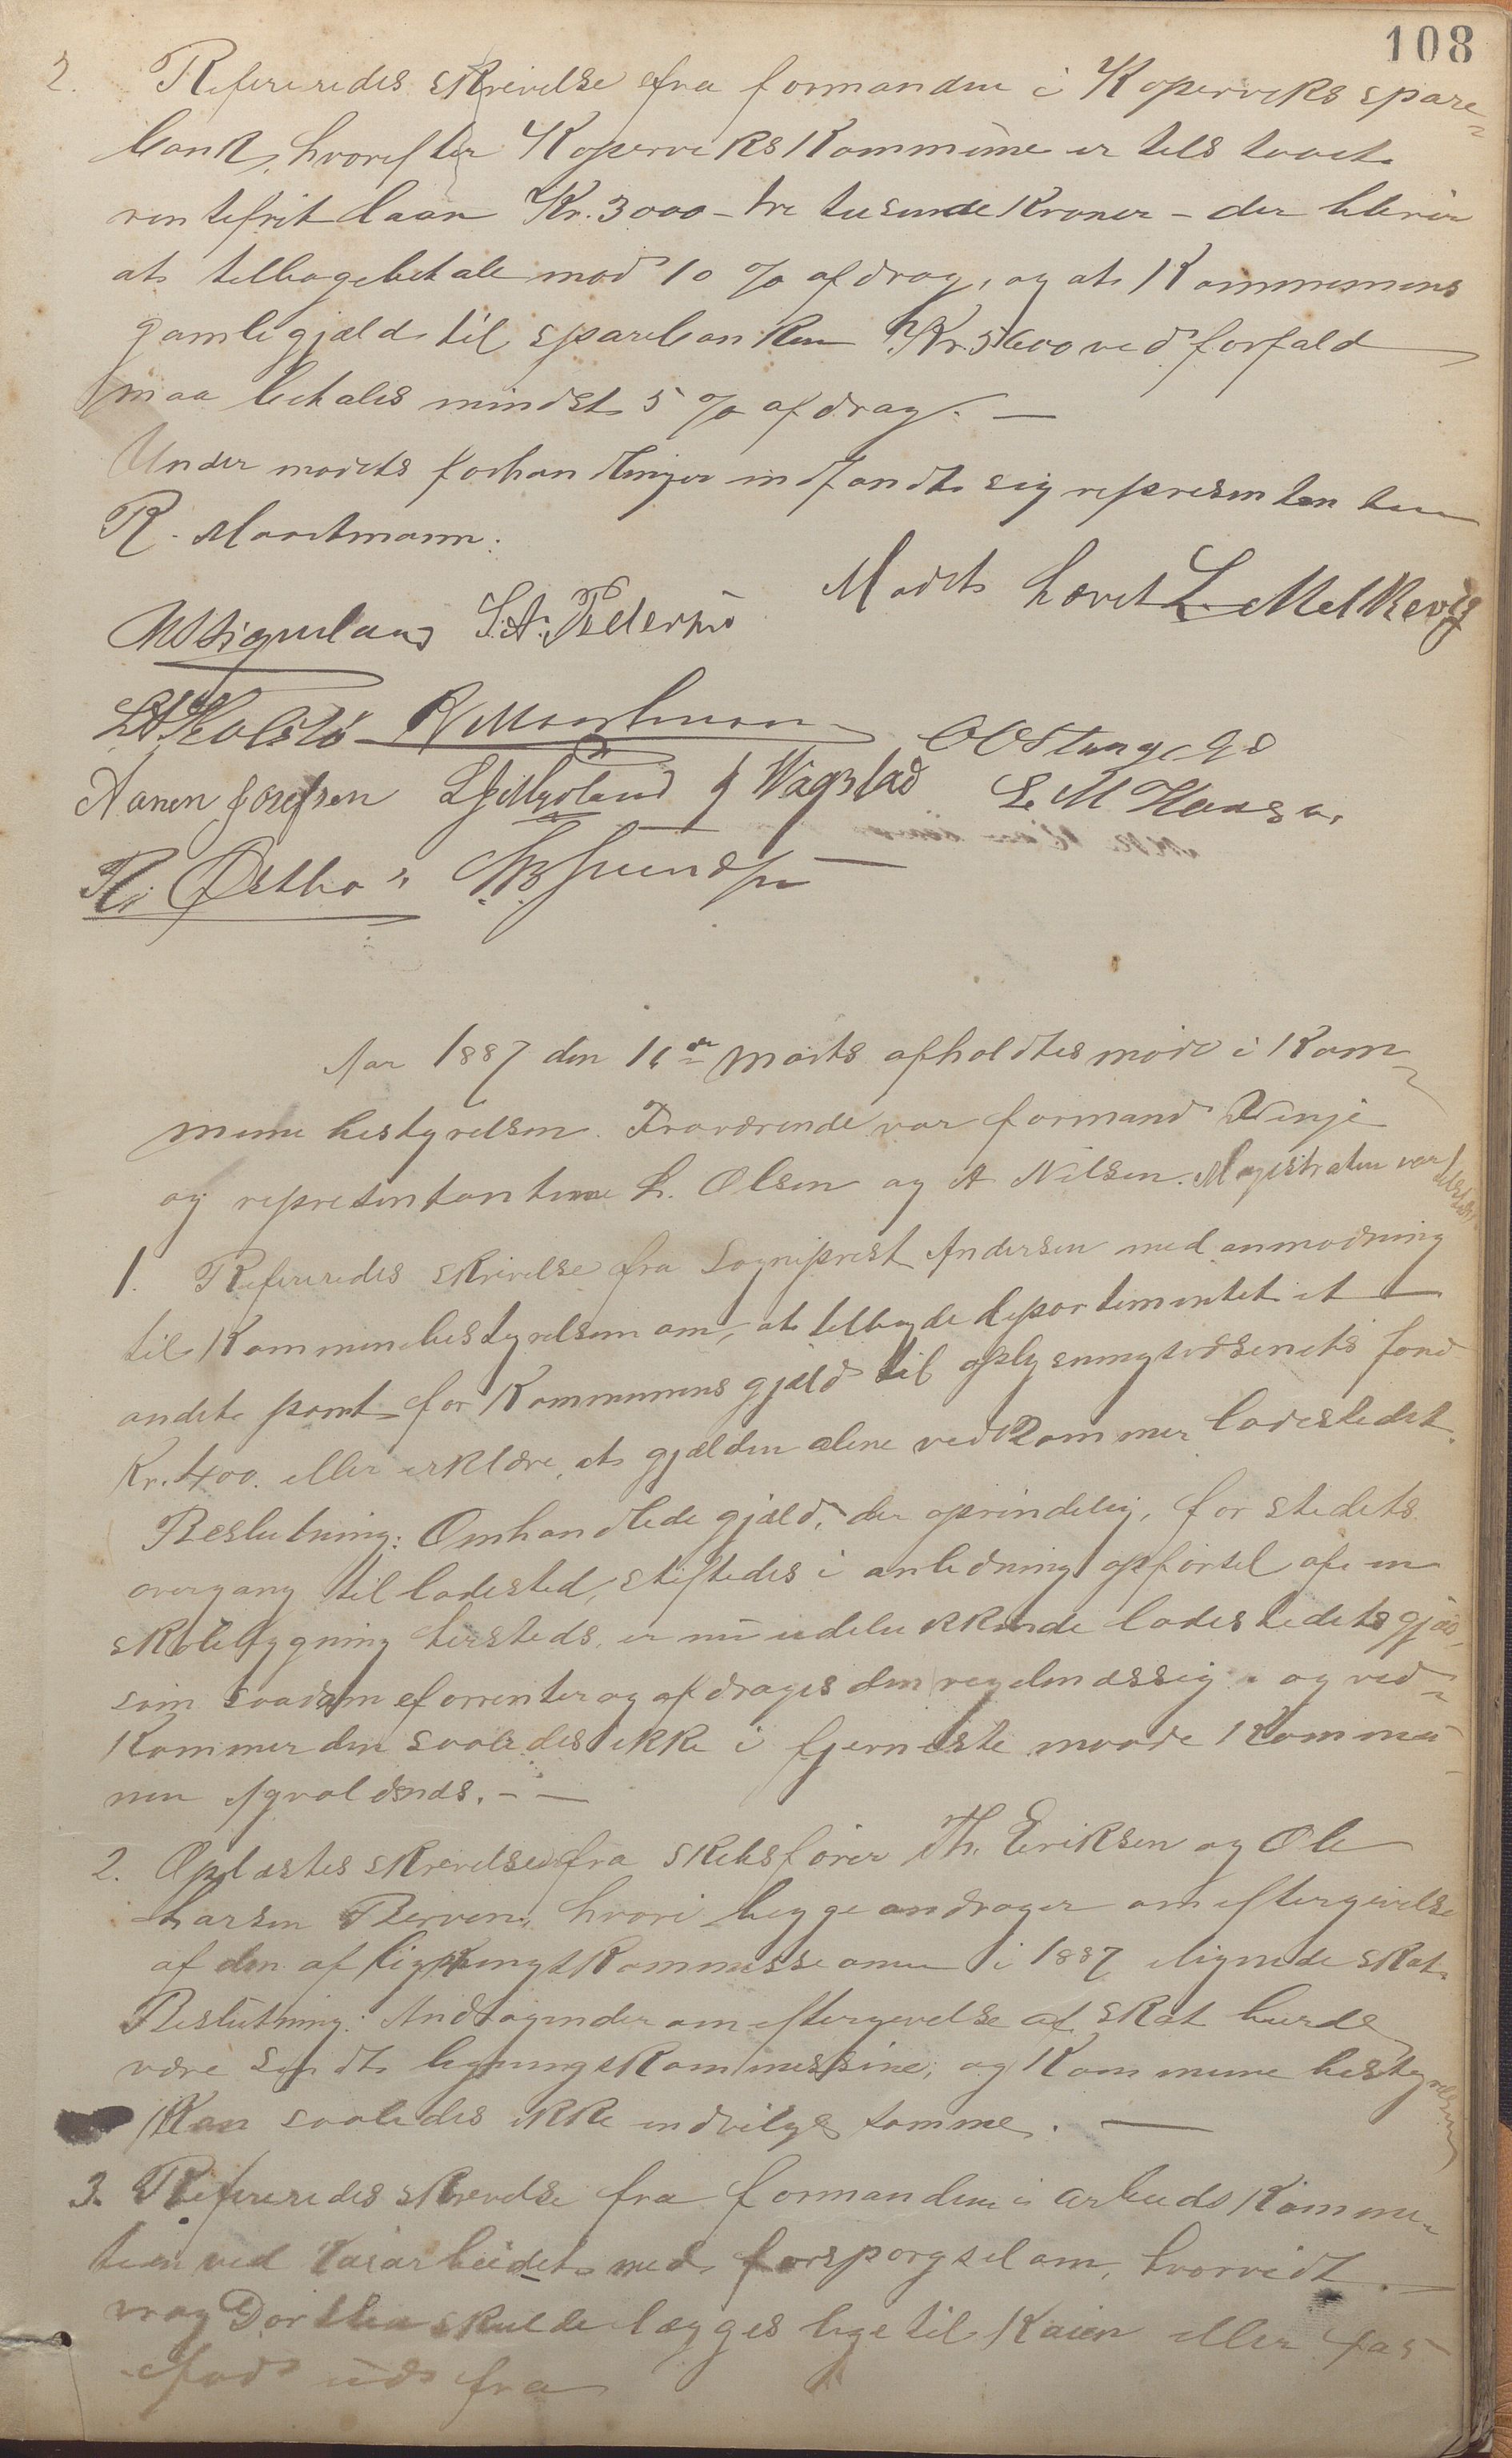 108
2. Refereredes skrivelse fra formanden i Kopervik spare-
bank, hvorefter Koperviks Kommune er tilstaaet
rentefrit laan Kr. 3000 - tre tusende Kroner - der bliver
at tilbagebetale mod 10 % afdrag, og at Kommunens
gamle gjæld til sparebanken Kr. 5600 ved forfald
maa betales mindst 5 % afdrag. —
Under mødets forhandlinger indfandt sig representanten
R. Maartmann.
Mødet hævet L. Melkevig
S. A. Pedersen
R Maartmann
Aanen Josefsen J Vagstad L. M Hansen
Aar 1887 den 16de Marts afholdtes møde i Kom-
munebestyrelsen. Fraværende var formand Vinje
og representanterne L. Olsen og A Nilsen. Magistraten var tilstede
1. Refereredes skrivelse fra Sogneprest Andersen med anmodning
til Kommunebestyrelsen om, at tilbyde departementet et
andet pant for Kommunens gjæld til oplysningsvæsenets fond
Kr. 400. eller erklære, at gjælden alene vedkommer ladestedet.
Beslutning: Omhandlede gjæld, der oprindelig, før stedets
overgang til ladested, stiftedes i anledning opførsel af en
skolebygning hersteds, er nu udelukkende ladestedets gjæld,
som saadan forrentes og afdrages den regelmæssig og ved-
kommer den saaledes ikke i fjerneste maade Kommu-
nen Avaldsnæs. - —
2. Oplæstes skrivelse fra skibsfører Th. Eriksen og Ole
Larsen Berven, hvori begge andrager om eftergivelse
af den af ligningskommissionen i 1887 lignede skat.
Beslutning: Andragender om eftergivelse af skat burde
være sendt ligningskommissine, og Kommunebestyrelsen
kan saaledes ikke indvilge samme. —
3. Refereredes skrivelse fra formanden i arbeidskommi-
teen ved Kaiarbeidet med forspørgsel om, hvorvidt
vrag Dorthea skulde lægges lige til Kaien eller faa
fod ud fra